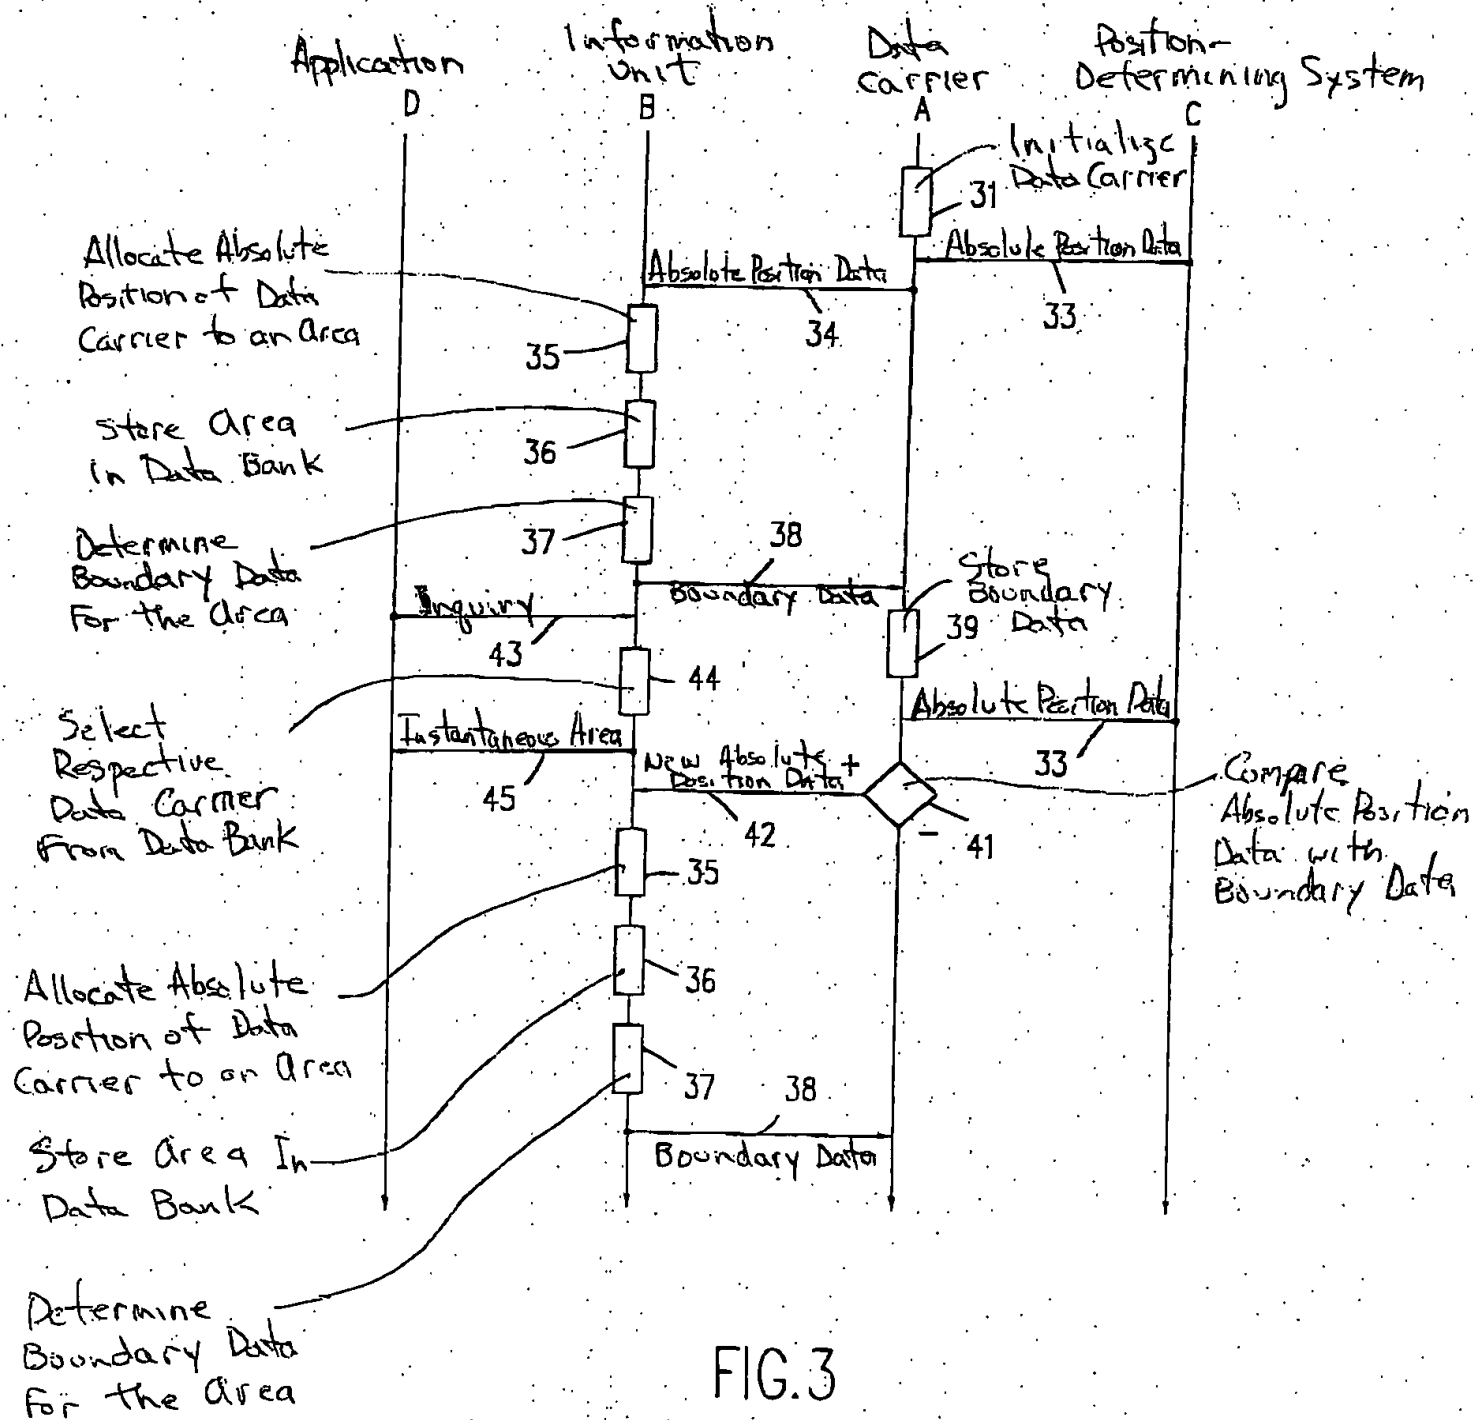 Application
D
Information
Unit
B
Data
Carrier
A
Position-
Determining System
C
Initialize
Data Carrier
31
Absolute Position Data
33
Absolute Position Data
34
Allocate Absolute
Position of Data
Carrier to an Area
35
Store Area
in Data Bank
36
Determine
Boundary Data
For the Area
37
38
Boundary Data
Store
Boundary
Data
39
Inquiry
43
44
Select
Respective
Data Carrier
From Data Bank
Absolute Position Data
33
Instantaneous Area
45
New Absolute
Position Data
+
42
-
41
Compare
Absolute Position
Data with
Boundary Data
35
Allocate Absolute
Position of Data
Carrier to an Area
36
Store Area In
Data Bank
37
38
Boundary Data
Determine
Boundary Data
For the Area
FIG.3